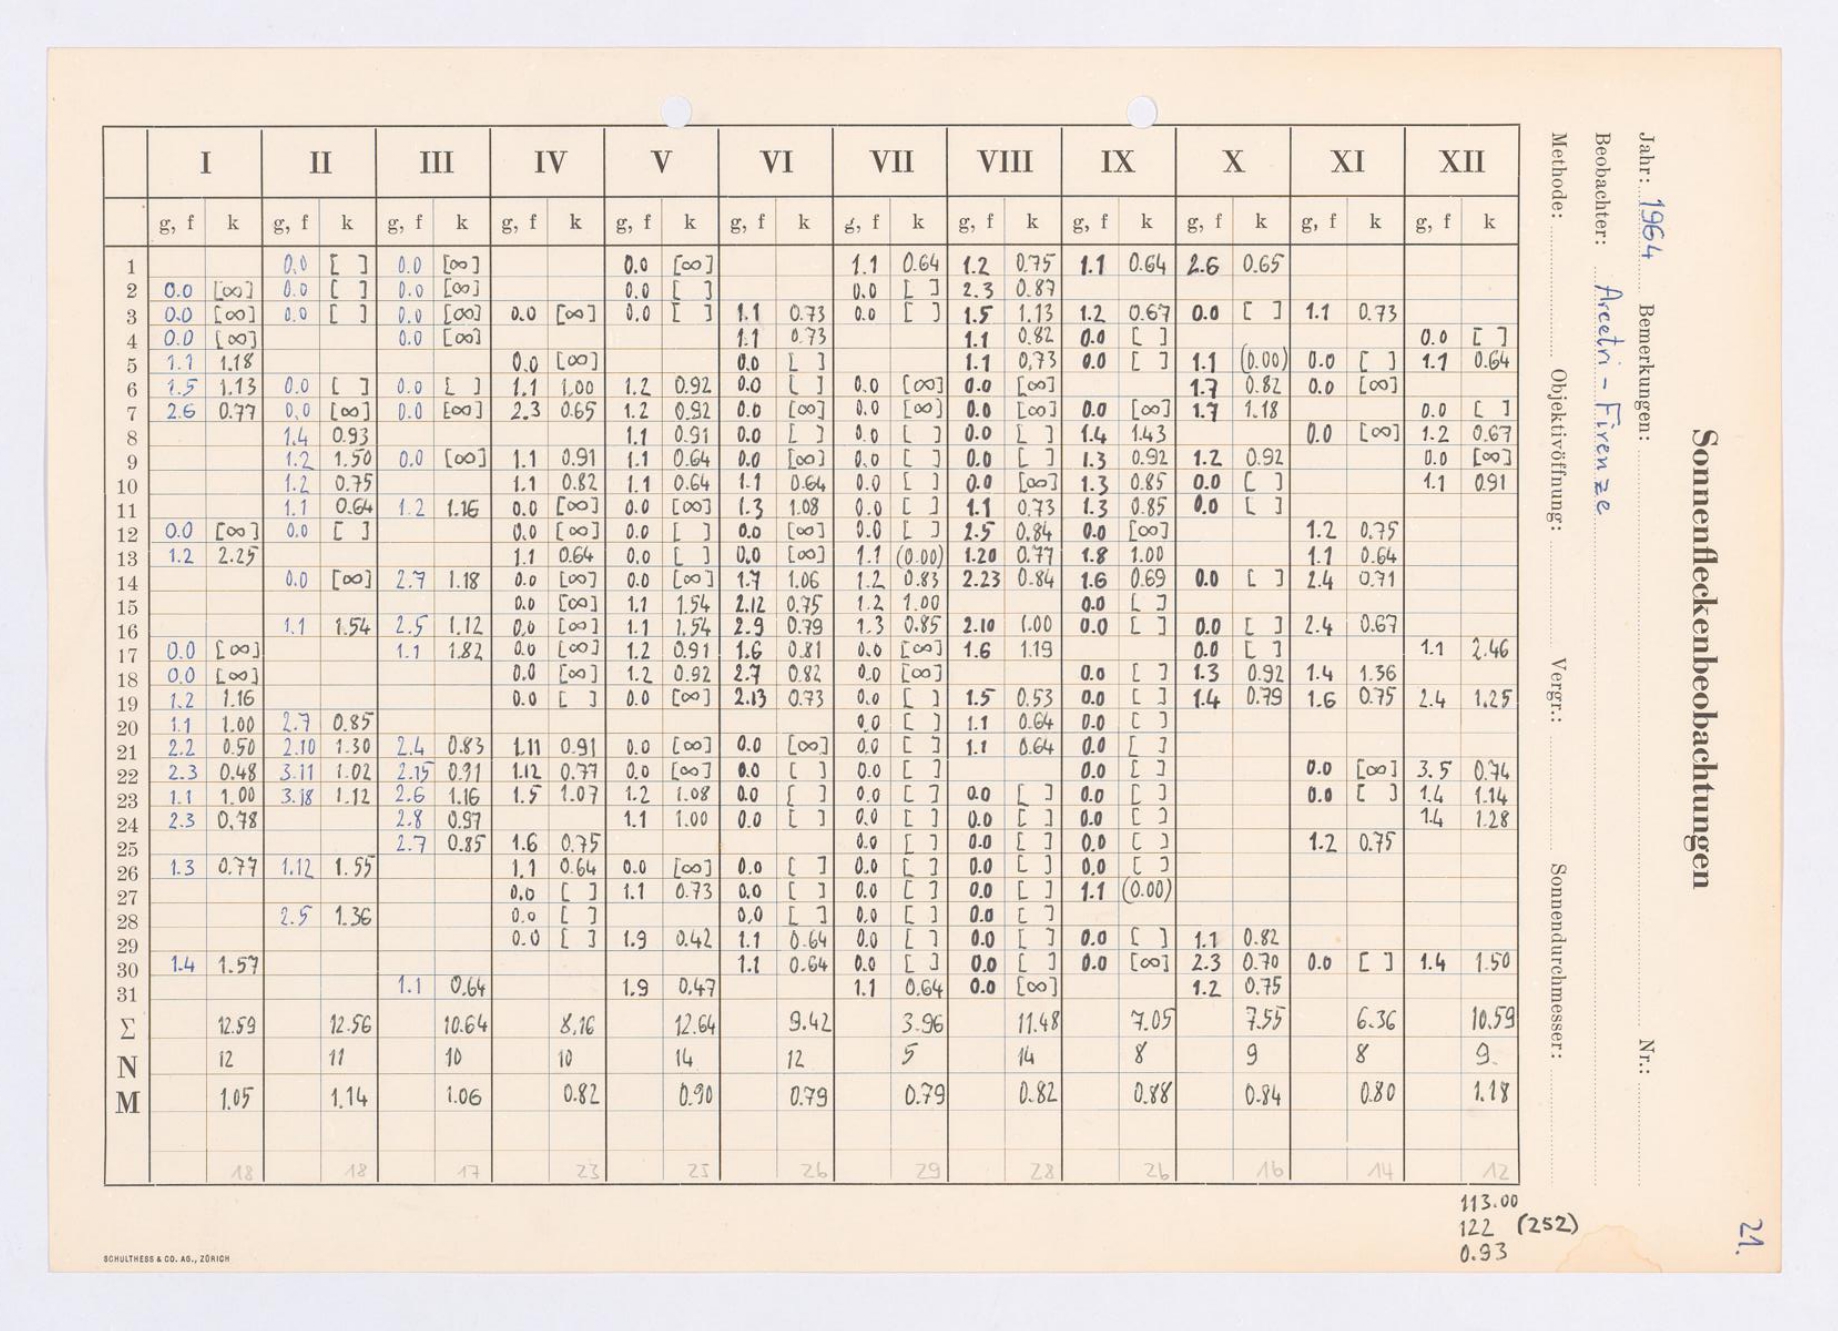 Sonnenfleckenbeobachtungen
Jahr: 1964 Bemerkungen: Nr.:
Beobachter: Arcetri - Firenze
Methode: Objektivöffnung: Vergr.: Sonnendurchmesser:
21.
I II III IV V VI VII VIII IX X XI XII
g, f k g, f k g, f k g, f k g, f k g, f k g, f k g, f k g, f k g, f k g, f k g, f k
1 0.0 [ ] 0.0 [∞] 0.0 [∞] 1.1 0.64 1.2 0.75 1.1 0.64 2.6 0.65
2 0.0 [∞] 0.0 [ ] 0.0 [∞] 0.0 [ ] 0.0 [ ] 2.3 0.87
3 0.0 [∞] 0.0 [ ] 0.0 [∞] 0.0 [∞] 0.0 [ ] 1.1 0.73 0.0 [ ] 1.5 1.13 1.2 0.67 0.0 [ ] 1.1 0.73
4 0.0 [∞] 0.0 [∞] 1.1 0.73 1.1 0.82 0.0 [ ] 0.0 [ ]
5 1.1 1.18 0.0 [∞] 0.0 [ ] 1.1 0.73 0.0 [ ] 1.1 (0.00) 0.0 [ ] 1.1 0.64
6 1.5 1.13 0.0 [ ] 0.0 [ ] 1.1 1.00 1.2 0.92 0.0 [ ] 0.0 [∞] 0.0 [∞] 1.7 0.82 0.0 [∞]
7 2.6 0.77 0.0 [∞] 0.0 [∞] 2.3 0.65 1.2 0.92 0.0 [∞] 0.0 [∞] 0.0 [∞] 0.0 [∞] 1.7 1.18 0.0 [ ]
8 1.4 0.93 1.1 0.91 0.0 [ ] 0.0 [ ] 0.0 [ ] 1.4 1.43 0.0 [∞] 1.2 0.67
9 1.2 1.50 0.0 [∞] 1.1 0.91 1.1 0.64 0.0 [∞] 0.0 [ ] 0.0 [ ] 1.3 0.92 1.2 0.92 0.0 [∞]
10 1.2 0.75 1.1 0.82 1.1 0.64 1.1 0.64 0.0 [ ] 0.0 [∞] 1.3 0.85 0.0 [ ] 1.1 0.91
11 1.1 0.64 1.2 1.16 0.0 [∞] 0.0 [∞] 1.3 1.08 0.0 [ ] 1.1 0.73 1.3 0.85 0.0 [ ]
12 0.0 [∞] 0.0 [ ] 0.0 [∞] 0.0 [ ] 0.0 [∞] 0.0 [ ] 2.5 0.84 0.0 [∞] 1.2 0.75
13 1.2 2.25 1.1 0.64 0.0 [ ] 0.0 [∞] 1.1 (0.00) 1.20 0.77 1.8 1.00 1.1 0.64
14 0.0 [∞] 2.7 1.18 0.0 [∞] 0.0 [∞] 1.7 1.06 1.2 0.83 2.23 0.84 1.6 0.69 0.0 [ ] 2.4 0.71
15 0.0 [∞] 1.1 1.54 2.12 0.75 1.2 1.00 0.0 [ ]
16 1.1 1.54 2.5 1.12 0.0 [∞] 1.1 1.54 2.9 0.79 1.3 0.85 2.10 1.00 0.0 [ ] 0.0 [ ] 2.4 0.67
17 0.0 [∞] 1.1 1.82 0.0 [∞] 1.2 0.91 1.6 0.81 0.0 [∞] 1.6 1.19 0.0 [ ] 1.1 2.46
18 0.0 [∞] 0.0 [∞] 1.2 0.92 2.7 0.82 0.0 [∞] 0.0 [ ] 1.3 0.92 1.4 1.36
19 1.2 1.16 0.0 [ ] 0.0 [∞] 2.13 0.73 0.0 [ ] 1.5 0.53 0.0 [ ] 1.4 0.79 1.6 0.75 2.4 1.25
20 1.1 1.00 2.7 0.85 0.0 [ ] 1.1 0.64 0.0 [ ]
21 2.2 0.50 2.10 1.30 2.4 0.83 1.11 0.91 0.0 [∞] 0.0 [∞] 0.0 [ ] 1.1 0.64 0.0 [ ]
22 2.3 0.48 3.11 1.02 2.15 0.91 1.12 0.77 0.0 [∞] 0.0 [ ] 0.0 [ ] 0.0 [ ] 0.0 [∞] 3.5 0.74
23 1.1 1.00 3.18 1.12 2.6 1.16 1.5 1.07 1.2 1.08 0.0 [ ] 0.0 [ ] 0.0 [ ] 0.0 [ ] 0.0 [ ] 1.4 1.14
24 2.3 0.78 2.8 0.97 1.1 1.00 0.0 [ ] 0.0 [ ] 0.0 [ ] 0.0 [ ] 1.4 1.28
25 2.7 0.85 1.6 0.75 0.0 [ ] 0.0 [ ] 0.0 [ ] 1.2 0.75
26 1.3 0.77 1.12 1.55 1.1 0.64 0.0 [∞] 0.0 [ ] 0.0 [ ] 0.0 [ ] 0.0 [ ]
27 0.0 [ ] 1.1 0.73 0.0 [ ] 0.0 [ ] 0.0 [ ] 1.1 (0.00)
28 2.5 1.36 0.0 [ ] 0.0 [ ] 0.0 [ ] 0.0 [ ]
29 0.0 [ ] 1.9 0.42 1.1 0.64 0.0 [ ] 0.0 [ ] 0.0 [ ] 1.1 0.82
30 1.4 1.57 1.1 0.64 0.0 [ ] 0.0 [ ] 0.0 [∞] 2.3 0.70 0.0 [ ] 1.4 1.50
31 1.1 0.64 1.9 0.47 1.1 0.64 0.0 [∞] 1.2 0.75
Σ 12.59 12.56 10.64 8.16 12.64 9.42 3.96 11.48 7.05 7.55 6.36 10.59
N 12 11 10 10 14 12 5 14 8 9 8 9
M 1.05 1.14 1.06 0.82 0.90 0.79 0.79 0.82 0.88 0.84 0.80 1.18
18 18 17 23 25 26 29 28 26 16 14 12
113.00
122 (252)
0.93
SCHULTHESS & CO. AG., ZÜRICH